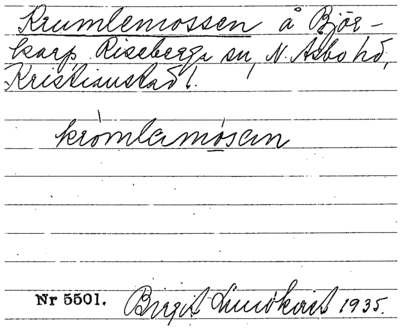 Krumlemossen å Björ-
karp Riseberga sn, N. Åsbo hd,
Kristianstad l.
kròmlamosan
Nr 5501. Birgit Lindkvist 1935.